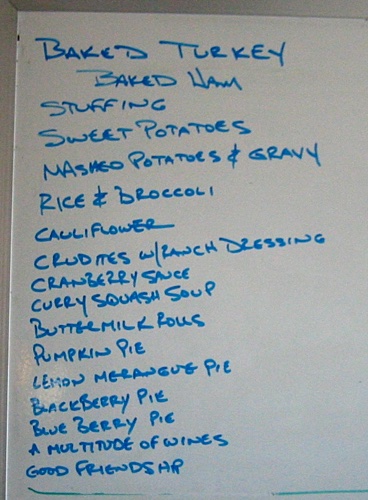 BAKED TURKEY
BAKED HAM
STUFFING
SWEET POTATOES
MASHED POTATOES & GRAVY
RICE & BROCCOLI
CAULIFLOWER
CRUDITES W/RANCH DRESSING
CRANBERRY SAUCE
CURRY SQUASH SOUP
BUTTERMILK ROLLS
PUMPKIN PIE
LEMON MERANGUE PIE
BLACKBERRY PIE
BLUE BERRY PIE
A MULTITUDE OF WINES
GOOD FRIENDSHIP